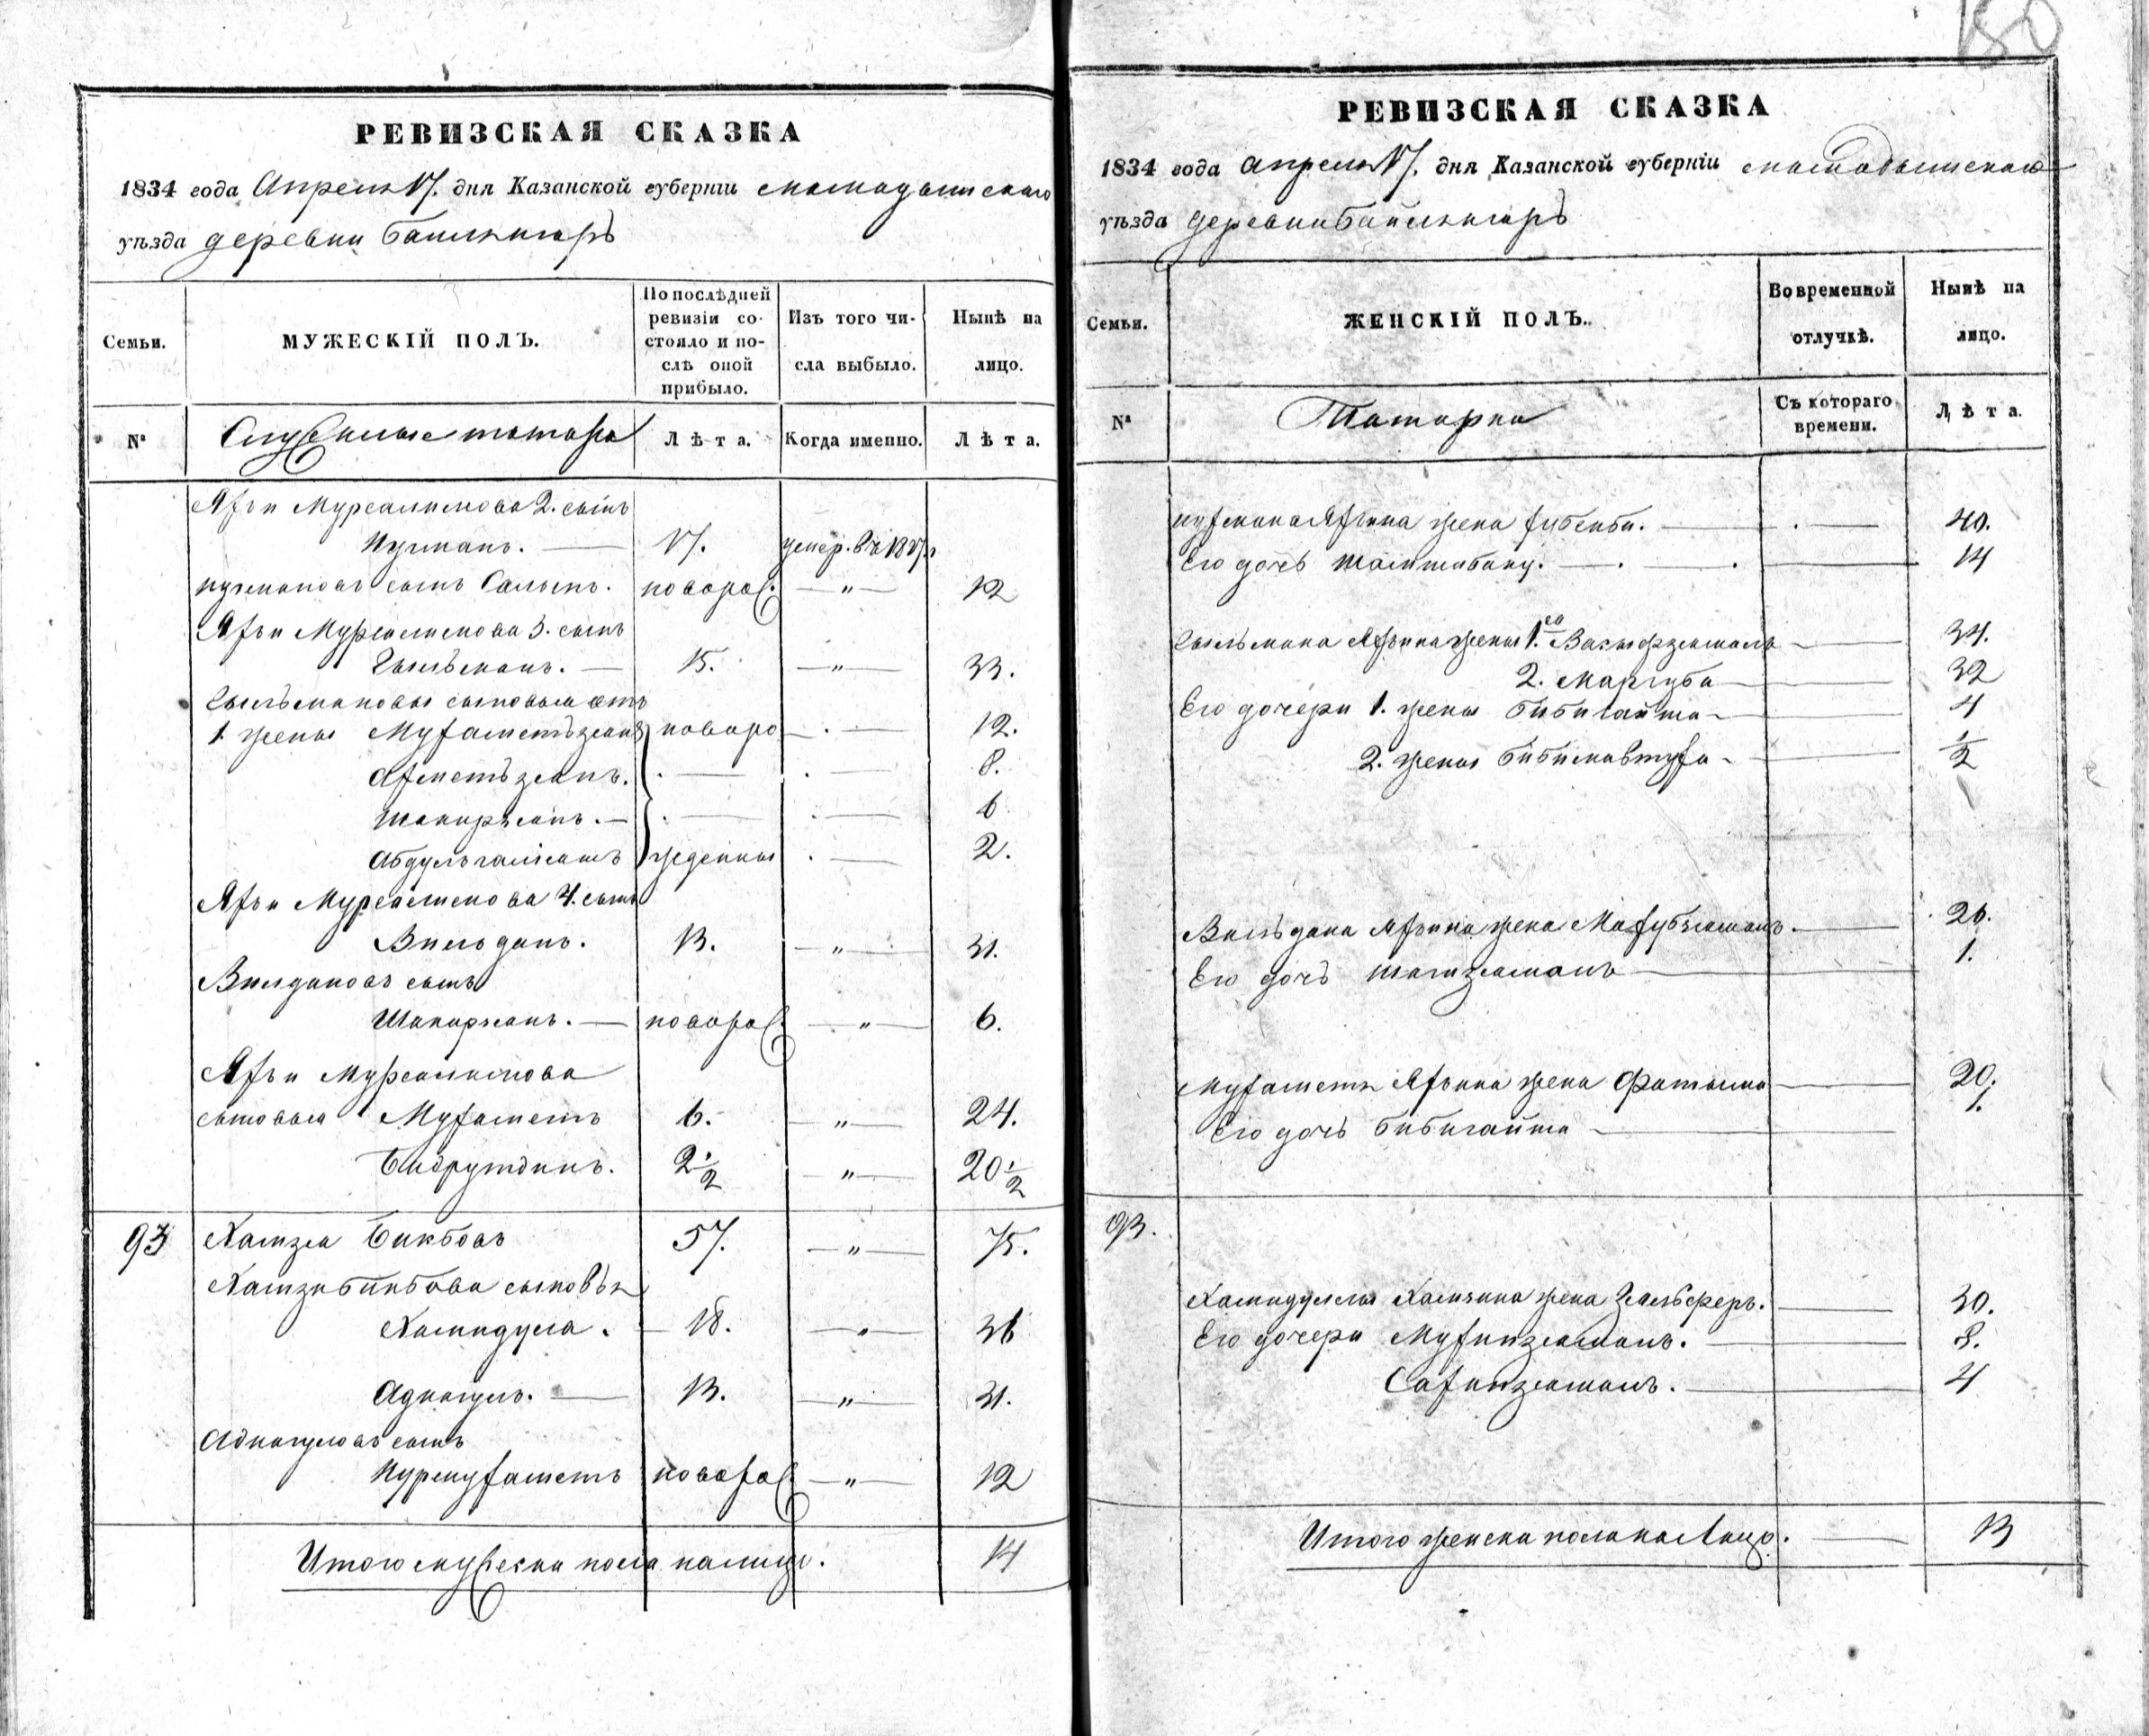 150
РЕВИЗСКАЯ СКАЗКА
1834 года Апреля 17. дня Казанской губерніи мамадышскаго
уѣзда деревни Баилянгаръ
Семьи.
МУЖЕСКІЙ ПОЛЪ.
По послѣдней ревизіи состояло и послѣ оной прибыло.
Изъ того числа выбыло.
Нынѣ на лицо.
№
Служилые татара
Лѣта.
Когда именно.
Лѣта.
Яхъи Мурсалимова 2. сынъ
Нугманъ. 17. умер. въ 18
нугмановъ сынъ Салихъ. новорож. " 12
Яхъи Мурсалимова 3. сынъ
15. " 33.
сыновья отъ
1 жены Мухаметъзянъ новоро 12.
Ахметьзянъ. 8.
Шакирзянъ. 6
жденныя 2.
Яхъи Мурсалимова 4. сынъ
Вильданъ. 13. " 31.
Вилдановъ сынъ
Шакирзянъ. новорож. " 6.
Яхъи Мурсалимова
сыновья Мухаметъ 6. " 24.
Бадрутдинъ. 2 1/2 " 20 1/2
93 Хамзя Бикбовъ 57. " 75.
Хамзи бикбова сыновья
Хамидулла. 18. " 36
Аднагулъ. 13. " 31.
Аднагуловъ сынъ
Нурмухаметъ новорож. " 12
Итого мужеска пола налицо. 14
РЕВИЗСКАЯ СКАЗКА
1834 года апреля 17. дня Казанской губерніи мамадышскаго
уѣзда деревни Байлянгаръ
Семьи.
ЖЕНСКІЙ ПОЛЪ.
Во временной отлучкѣ.
Нынѣ на лицо.
№
Татарки
Съ котораго времени.
Лѣта.
нугмана Яхъина жена 40.
Его дочь 14
Яхъина жены 1.ая 34.
2. Маргуба 32
Его дочери 1. жены бибигайша 4
2. жены 1/2
Вильдана Яхъина жена Махубзямалъ. 26.
Его дочь шамзямалъ 1.
Мухаметя Яхъина жена Фатыма 20.
Его дочь бибигайша 1.
93.
Хамидуллы Хамзина жена 30.
Его дочери Муфиизямалъ. 8.
Сафиизямалъ. 4
Итого женска пола на лицо. 13